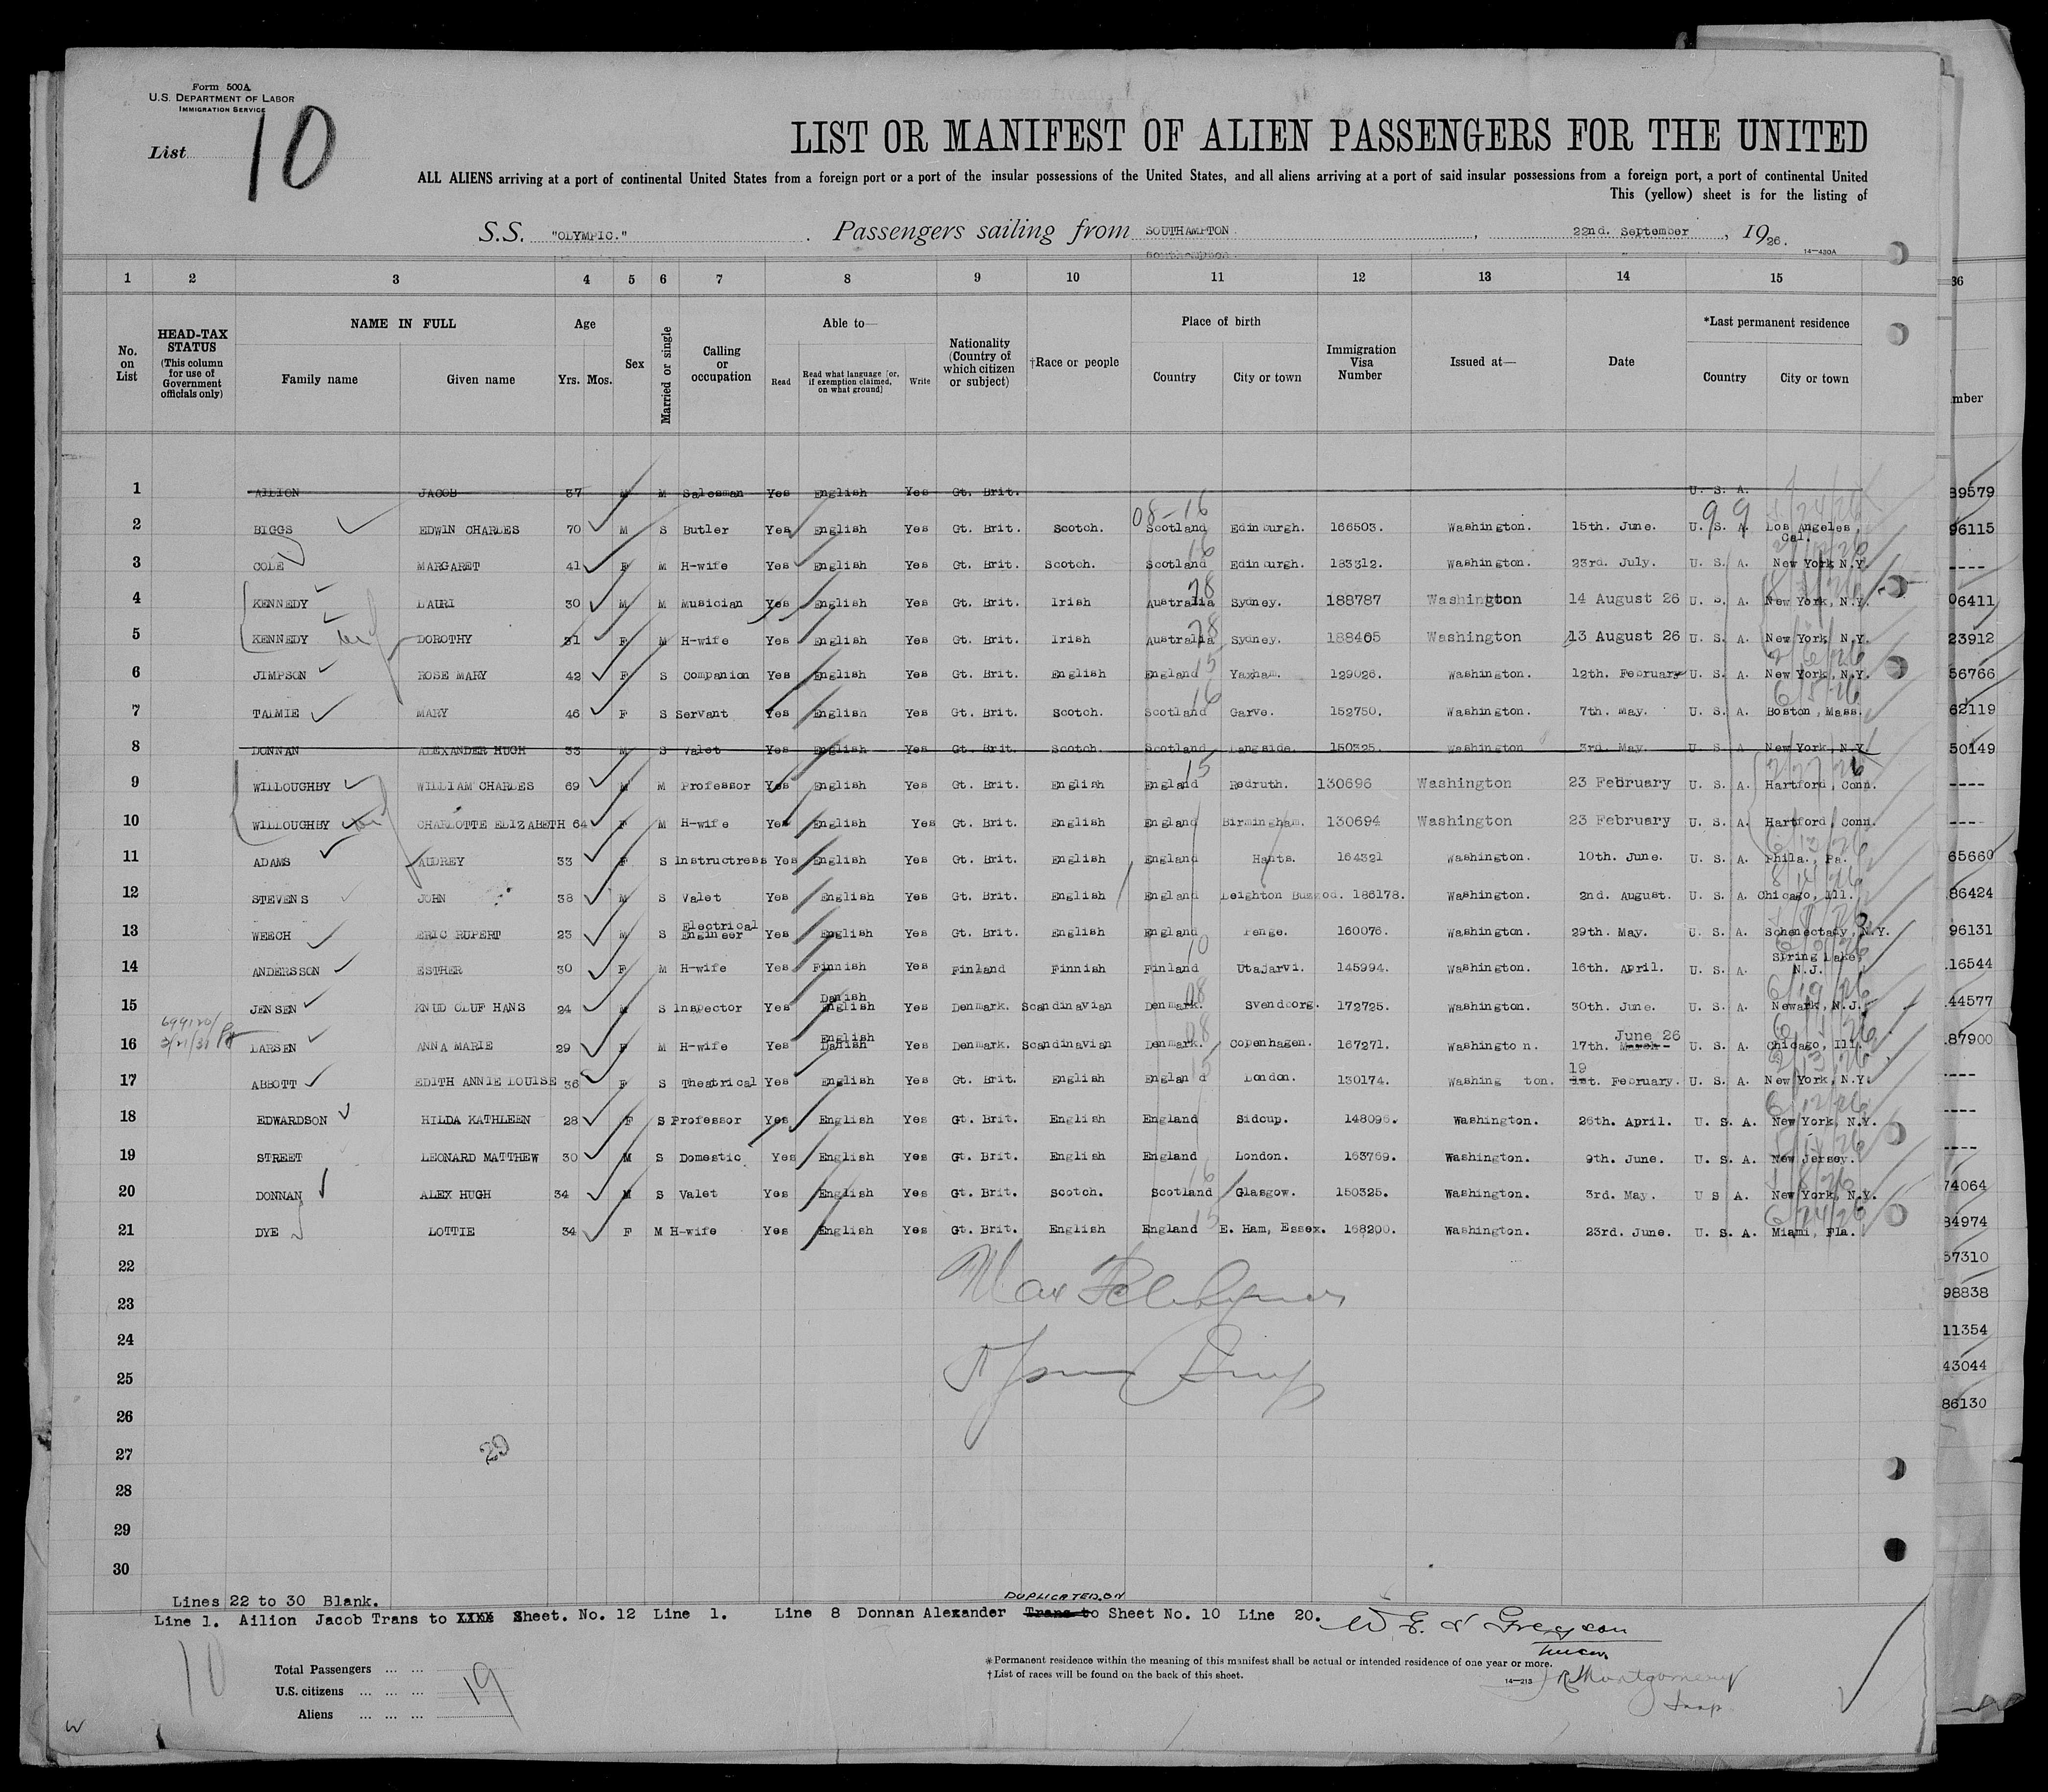 Form 500A
U.S. DEPARTMENT OF LABOR
IMMIGRATION SERVICE
List 10
LIST OR MANIFEST OF ALIEN PASSENGERS FOR THE UNITED
ALL ALIENS arriving at a port of continental United States from a foreign port or a port of the insular possessions of the United States, and all aliens arriving at a port of said insular possessions from a foreign port, a port of continental United
This (yellow) sheet is for the listing of
S.S. "OLYMPIC." Passengers sailing from SOUTHAMPTON, 22nd. September, 1926.
Southampton
14-430A
1 2 3 4 5 6 7 8 9 10 11 12 13 14 15 36
No. on List
HEAD-TAX STATUS (This column for use of Government officials only)
NAME IN FULL
Family name Given name
Age
Yrs. Mos.
Sex
Married or single
Calling or occupation
Able to—
Read Read what language [or, if exemption claimed, on what ground] Write
Nationality (Country of which citizen or subject)
†Race or people
Place of birth
Country City or town
Immigration Visa Number
Issued at—
Date
*Last permanent residence
Country City or town
mber
1 AILION JACOB 37 M M Salesman Yes English Yes Gt. Brit. U. S. A. 89579
08-16 99 5/24/26
2 BIGGS EDWIN CHARLES 70 M S Butler Yes English Yes Gt. Brit. Scotch. Scotland Edinburgh. 166503. Washington. 15th. June. U. S. A. Los Angeles, Cal. 96115
16
3 COLE MARGARET 41 F M H-wife Yes English Yes Gt. Brit. Scotch. Scotland Edinburgh. 183312. Washington. 23rd. July. U. S. A. New York N.Y. ----
28
4 KENNEDY LAURI 30 M M Musician Yes English Yes Gt. Brit. Irish Australia Sydney. 188787 Washington 14 August 26 U. S. A. New York, N.Y. 06411
28
5 KENNEDY DOROTHY 31 F M H-wife Yes English Yes Gt. Brit. Irish Australia Sydney. 188405 Washington 13 August 26 U. S. A. New York, N.Y. 23912
15 2/6/26
6 JIMPSON ROSE MARY 42 F S Companion Yes English Yes Gt. Brit. English England Yaxham. 129026. Washington. 12th. February U. S. A. New York, N.Y. 56766
16 6/5/26
7 TALMIE MARY 46 F S Servant Yes English Yes Gt. Brit. Scotch. Scotland Garve. 152750. Washington. 7th. May. U. S. A. Boston, Mass. 62119
8 DONNAN ALEXANDER HUGH 33 M S Valet Yes English Yes Gt. Brit. Scotch. Scotland Langside. 150325. Washington 3rd. May. U. S. A. New York, N.Y. 50149
15
9 WILLOUGHBY WILLIAM CHARLES 69 M M Professor Yes English Yes Gt. Brit. English England Redruth. 130696 Washington 23 February U. S. A. Hartford, Conn. ----
10 WILLOUGHBY CHARLOTTE ELIZABETH 64 F M H-wife Yes English Yes Gt. Brit. English England Birmingham. 130694 Washington 23 February U. S. A. Hartford, Conn. ----
11 ADAMS AUDREY 33 F S Instructress Yes English Yes Gt. Brit. English England Hants. 164321 Washington. 10th. June. U. S. A. Phila., Pa. 65660
12 STEVENS JOHN 38 M S Valet Yes English Yes Gt. Brit. English England Leighton Buzzod. 186178. Washington. 2nd. August. U. S. A Chicago, Ill. 86424
13 WEECH ERIC RUPERT 23 M S Electrical Engineer Yes English Yes Gt. Brit. English England Penge. 160076. Washington. 29th. May. U. S. A. Schenectady, N.Y. 96131
10
14 ANDERSSON ESTHER 30 F M H-wife Yes Finnish Yes Finland Finnish Finland Utajarvi. 145994. Washington. 16th. April. U. S. A. Spring Lake, N.J. 16544
08 6/19/26
15 JENSEN KNUD OLUF HANS 24 M S Inspector Yes Danish English Yes Denmark. Scandinavian Denmark. Svendborg. 172725. Washington. 30th. June. U. S. A. Newark, N.J. 44577
08
16 LARSEN ANNA MARIE 29 F M H-wife Yes English Danish Yes Denmark. Scandinavian Denmark. Copenhagen. 167271. Washington. 17th. March June 26 U. S. A. Chicago, Ill. 87900
15 2/13/26
17 ABBOTT EDITH ANNIE LOUISE 36 F S Theatrical Yes English Yes Gt. Brit. English England London. 130174. Washing ton. 19 1st. February. U. S. A. New York, N.Y. ----
6/12/26
18 EDWARDSON HILDA KATHLEEN 28 F S Professor Yes English Yes Gt. Brit. English England Sidcup. 148096. Washington. 26th. April. U. S. A. New York, N.Y. ----
19 STREET LEONARD MATTHEW 30 M S Domestic Yes English Yes Gt. Brit. English England London. 163769. Washington. 9th. June. U. S. A. New Jersey. ----
16
20 DONNAN ALEX HUGH 34 M S Valet Yes English Yes Gt. Brit. Scotch. Scotland Glasgow. 150325. Washington. 3rd. May. U S A. New York, N.Y. 74064
15 6/24/26
21 DYE LOTTIE 34 F M H-wife Yes English Yes Gt. Brit. English England E. Ham, Essex. 168200. Washington. 23rd. June. U. S. A. Miami, Fla. 84974
22 57310
23 98838
24 11354
25 43044
26 86130
27 29
28
29
30
Lines 22 to 30 Blank.
DUPLICATED ON
Line 1. Ailion Jacob Trans to XXXX Sheet. No. 12 Line 1. Line 8 Donnan Alexander Trans to Sheet No. 10 Line 20.
10
Total Passengers ... ...
U.S. citizens ... ... ... 19
Aliens ... ... ...
*Permanent residence within the meaning of this manifest shall be actual or intended residence of one year or more.
†List of races will be found on the back of this sheet.
14-213
R Montgomery
Insp